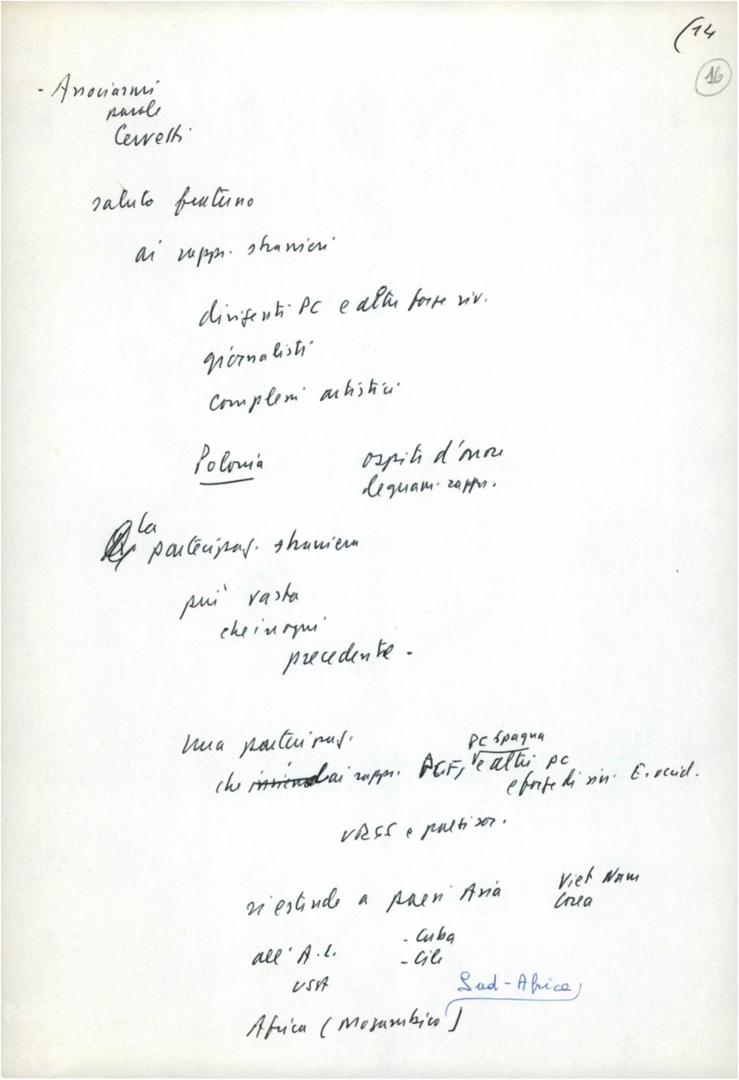 (14
16
- Associarmi
parole
Cervetti
saluto fraterno
ai rappr. stranieri
dirigenti PC e altre forze riv.
giornalisti
complessi artistici
Polonia ospite d'onore
rappr.
la partecipaz. straniera
più vasta
che in ogni
precedente -
una partecipaz.
PC Spagna
che dai rappr. PCF, e altri PC
e forze di sin. E. occid.
URSS e paesi soc.
si estende a paesi Asia Viet Nam
Corea
all'A.L. - Cuba
- Cile
USA Sud-Africa
Africa (Mozambico)